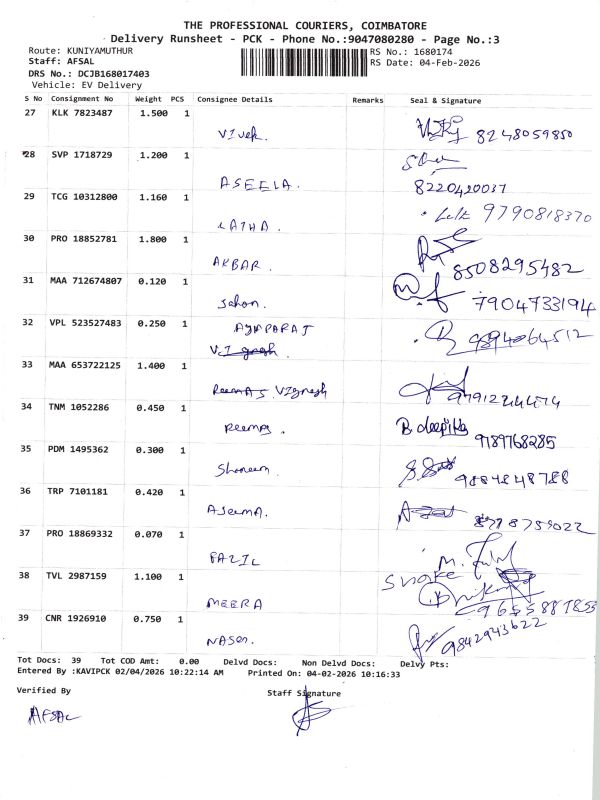 THE PROFESSIONAL COURIERS, COIMBATORE
Delivery Runsheet - PCK - Phone No.:9047080280 - Page No.:3
Route: KUNIYAMUTHUR RS No.: 1680174
Staff: AFSAL RS Date: 04-Feb-2026
DRS No.: DCJB168017403
Vehicle: EV Delivery
S No Consignment No Weight PCS Consignee Details Remarks Seal & Signature
27 KLK 7823487 1.500 1
Vivek. 8248059850
28 SVP 1718729 1.200 1
ASEELA. 8220420037
29 TCG 10312800 1.160 1
LATHA. 9790818370
30 PRO 18852781 1.800 1
AKBAR. 8508295482
31 MAA 712674807 0.120 1
7904733194
32 VPL 523527483 0.250 1
33 MAA 653722125 1.400 1
34 TNM 1052286 0.450 1
Reema. B deepika
9789768285
35 PDM 1495362 0.300 1
9884848788
36 TRP 7101181 0.420 1
ASeema.
37 PRO 18869332 0.070 1
FAZIL
38 TVL 2987159 1.100 1
MEERA
39 CNR 1926910 0.750 1
9842943622
Tot Docs: 39 Tot COD Amt: 0.00 Delvd Docs: Non Delvd Docs: Delvy Pts:
Entered By :KAVIPCK 02/04/2026 10:22:14 AM Printed On: 04-02-2026 10:16:33
Verified By Staff Signature
AFSAL